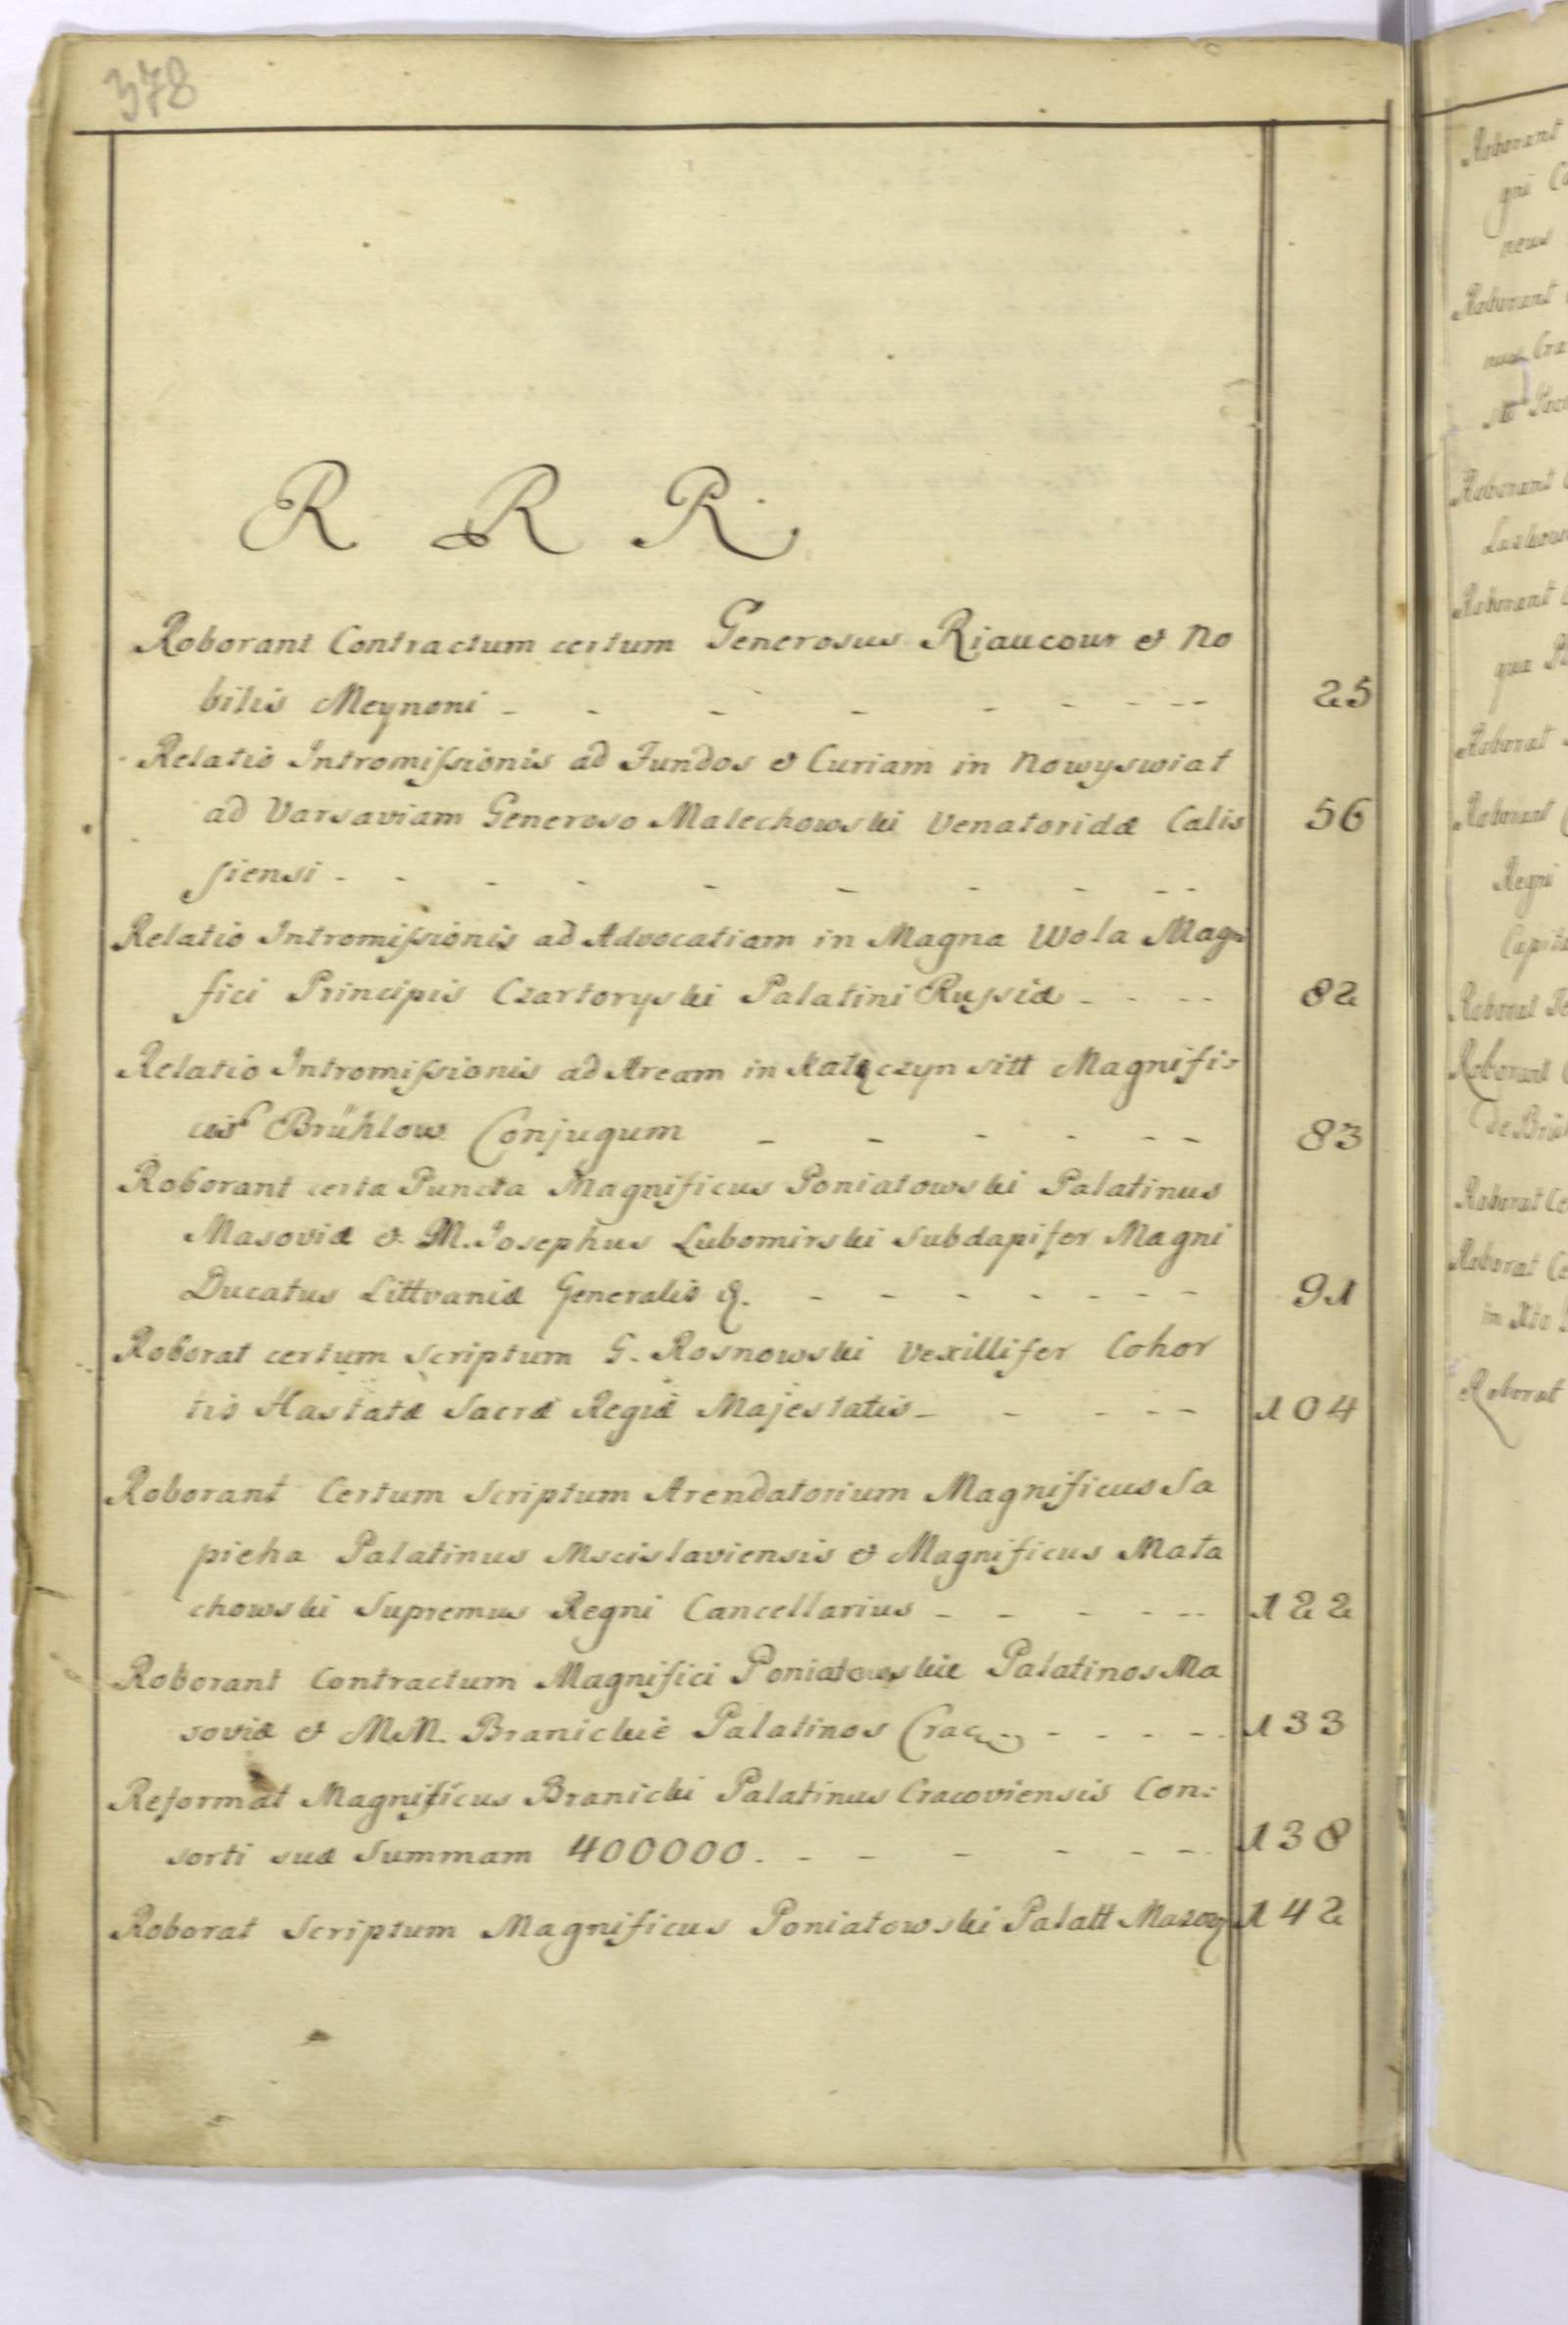 378
R R R
Roborant Contractum certum Generosus Riaucour et No
bilis Meynoni - - - - - - - - - 25
Relatio Intromissionis ad Fundos et Curiam in Nowyswiat
ad Varsaviam Generoso Malechowski Venatoridæ Calis 56
siensi - - - - - - - - - -
Relatio Intromissionis ad Advocatiam in Magna Wola Magni
fici Principis Czartoryski Palatini Russiæ - - - - 82
Relatio Intromissionis ad Aream in Kałęczyn sitt Magnifi-
Brühlow Conjugum - - - - - - 83
Roborant certa Puncta Magnificus Poniatowski Palatinus
Masoviæ et M. Josephus Lubomirski Subdapifer Magni
Ducatus Littvaniæ Generalis &. - - - - - - - - 91
Roborat certum Scriptum G. Rosnowski Vexillifer Cohor
tis Hastatæ Sacræ Regiæ Majestatis - - - - - 104
Roborant Certum Scriptum Arendatorium Magnificus Sa
pieha Palatinus Mscislaviensis et Magnificus Mała
chowski Supremus Regni Cancellarius - - - - - - 122
Roborant Contractum Magnifici Poniatowskie Palatinos Ma
soviæ et MM. Branickie Palatinos Crac - - - - - 133
Reformat Magnificus Branicki Palatinus Cracoviensis Con:
sorti suæ Summam 400000. - - - - - - 138
Roborat Scriptum Magnificus Poniatowski Palatt Mazow 142
Roborant
qni
neus
Roborant
nus Cra
Roborant
Roborant
quæ
Roborat
Roborant
Regni
Capit
Roborat
Roborant
de Brü
Roborat
Roborat
im
Roborat